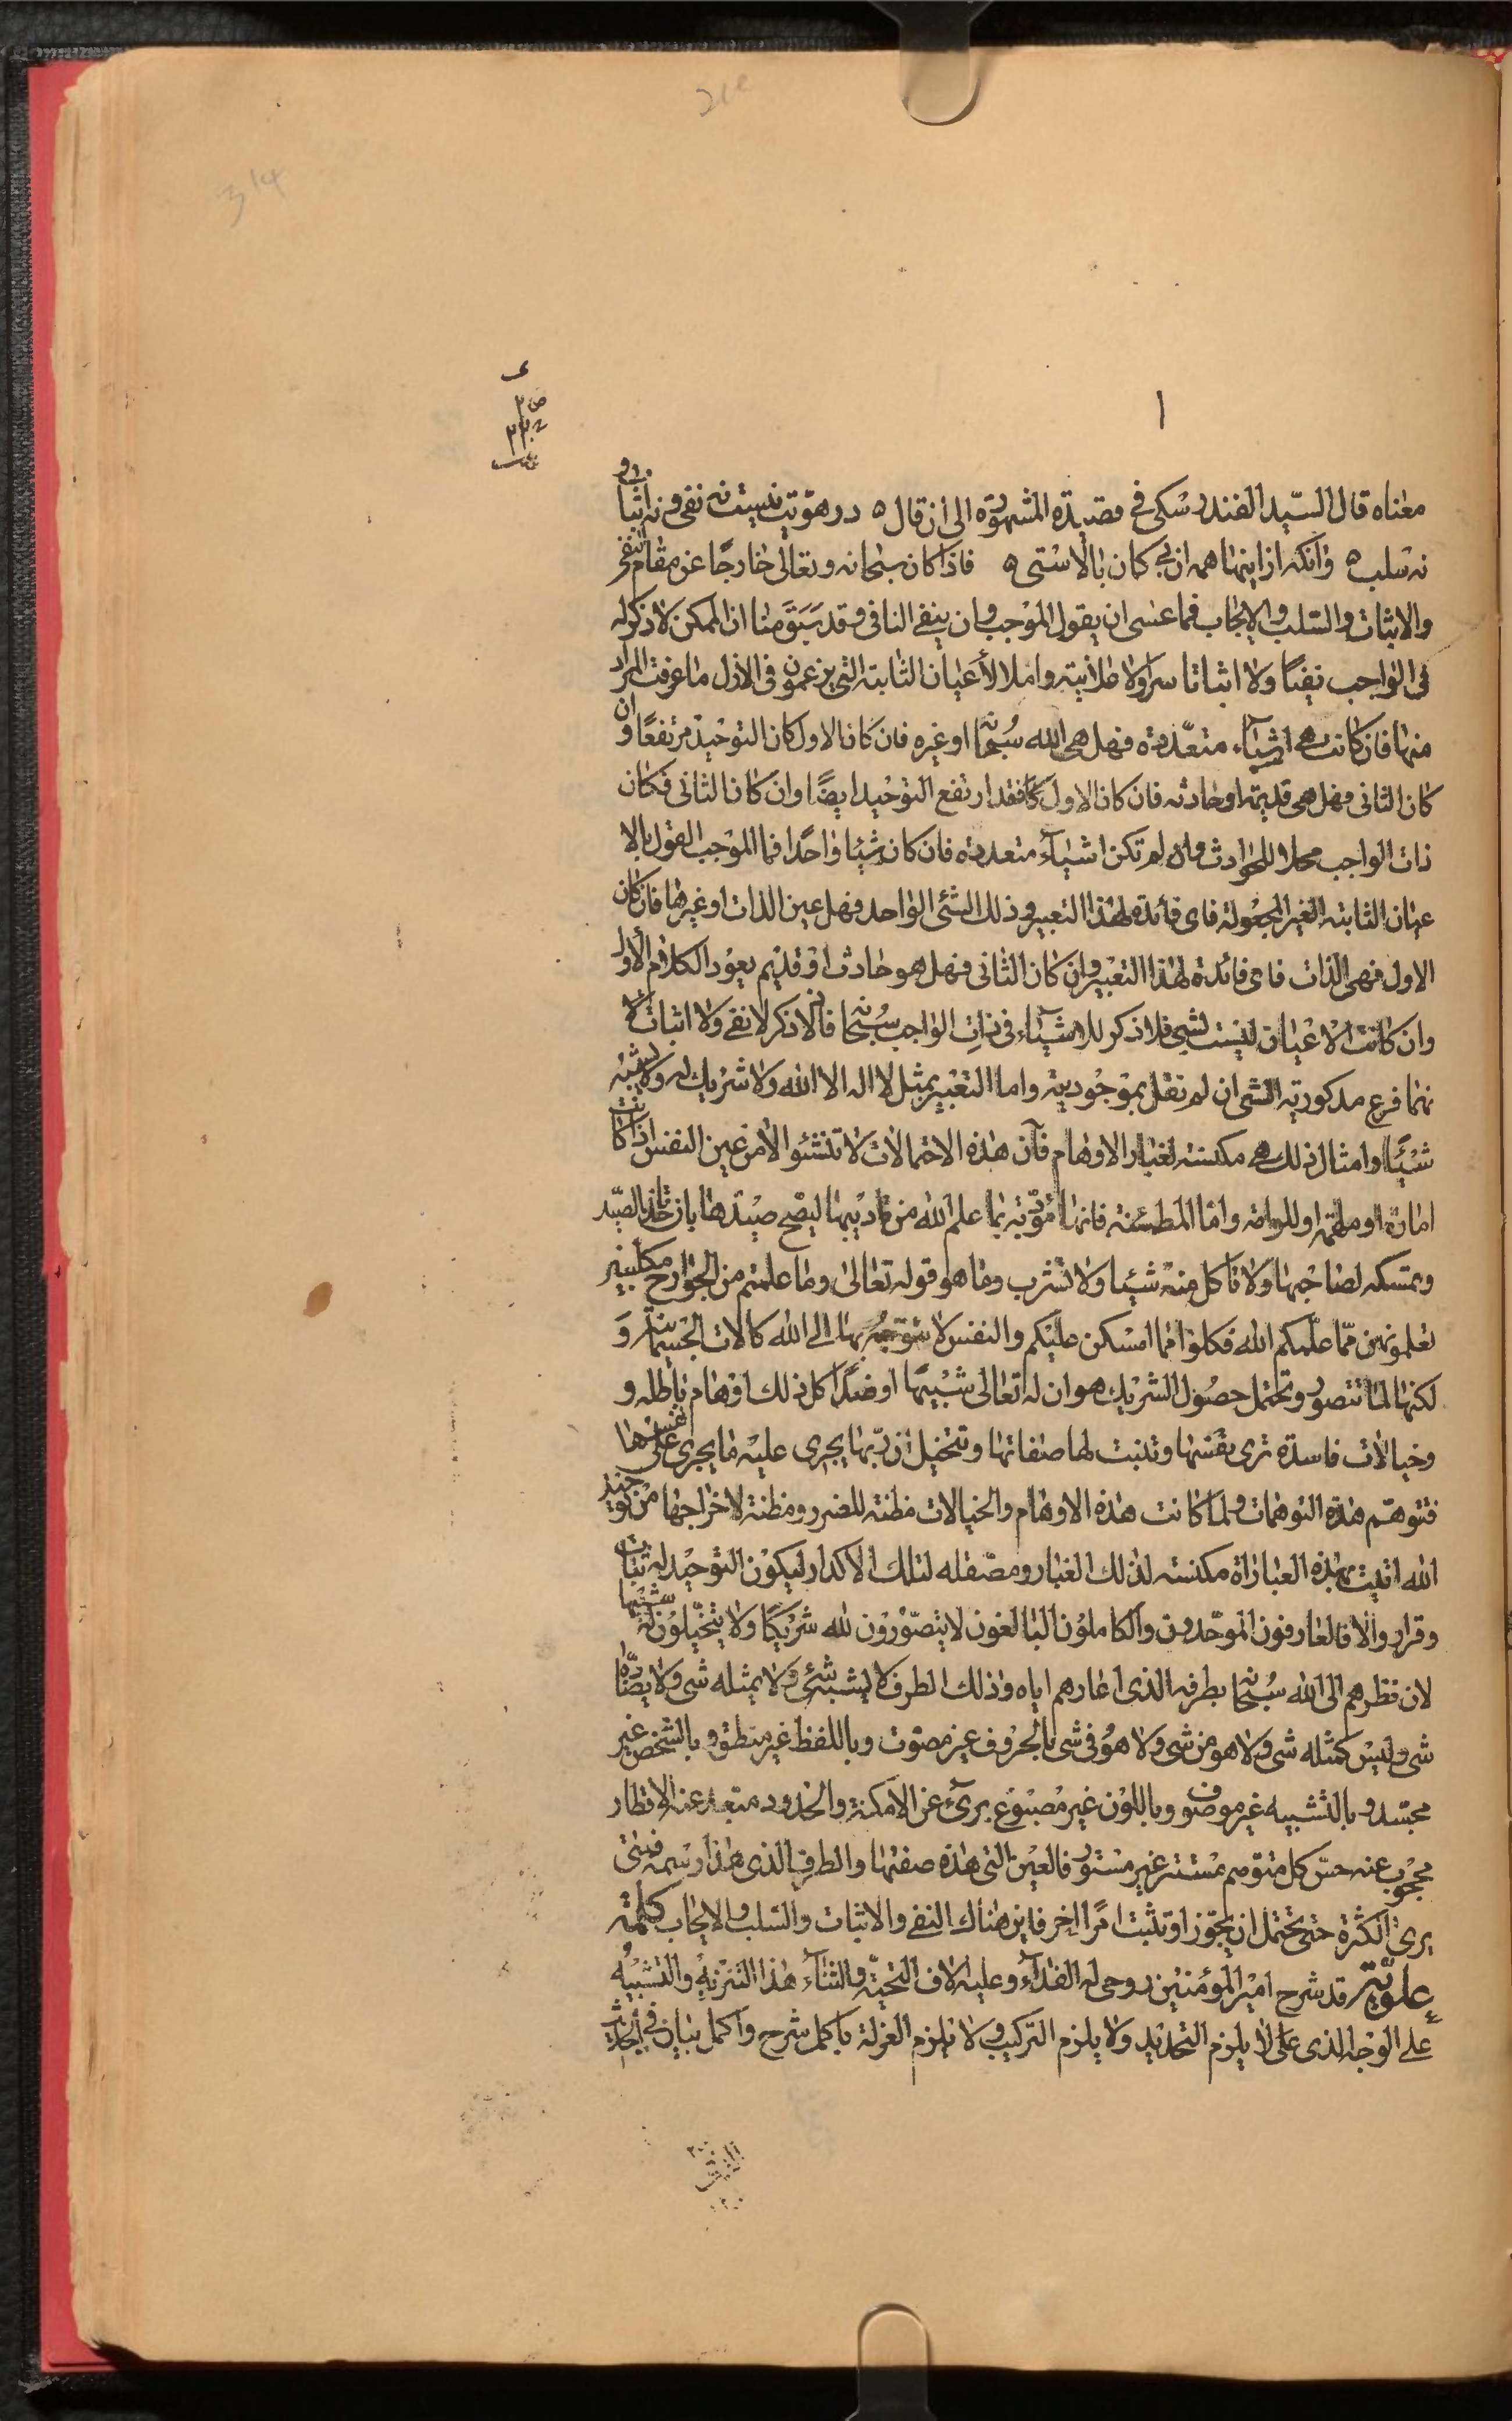 314
١
معناه قال السّيد الفندرسكى فى قصيدته المشهورة الى ان قال ٥ در هوّيت نيست نه نفى و نه اثبات و
نه سلب ٥ وانكه از اينها همه ان بى كمان بالاستى ٥ فاذا كان سبحانه وتعالى خارجًا عن مقام النفى
والاثبات والسّلب والايجاب فما عسى ان يقول الموجب وان ينفى النافى وقد سَبَقَ منا ان الممكن لا ذكر له
فى الواجب نفيًا ولا اثباتا سرا ولا علانية واملا الأعيان الثابتة التى يزعمون فى الازل ما عرفت المراد
منها فان كانت هى اشيآء متعدّدة فهل هى الله سُبحانه او غيره فان كان الاول كان التوحيد مرتفعًا وان
كان الثانى فهل هى قديمة او حادثه فان كان الاول كا فقد ارتفع التوحيد ايضًا وان كان الثانى فكان
ذات الواجب محلا للحوادث وان لم تكن اشيآء متعددة فان كان شيئا واحدًا فما الموجب القول بالا
عيان الثابتة الغير المجعولة فاى فائدة لهذا التعبير وذلك الشئ الواحد فهل عين الذات او غيرها فان كان
الاول فهى الذات فاى فائدة لهذا التعبير وان كان الثانى فهل هو حادث او قديم يعود الكلام الأول
وان كانت الاعيان ليست بشئ فلا ذكر للاشيآء فى ذات الواجب سُبحانه فانه لا ذكر لا نفى ولا اثبات لا
نهما فرع مذكورية الشئ ان لم نقل بموجودية واما التعبير بمثل لا اله الا الله ولا شريك له ولا يشبه
شيئًا وامثال ذلك هى مكنسة لغبار الاوهام فان هذه الاحتمالات لا تنشئو الا من عين النفس اذا كانت
امارة او ملهمة او للوامة واما المطمئنة فانها مؤدّبة بما علم الله من تاديبها ليصح صيدها بان تاخذ بالصّيد
وتمسكه لصاحبها ولا تاكل منه شيئا ولا تشرب وما هو قوله تعالى وما علمتم من الجوارح مكلّبين
تعلمونهن ممّا علّمكم الله فكلوا مما امسكن عليكم والنفس لا تتوجّه بها الى الله كالات الجسمانيّة وَ
لكنها لما تتصور وتحتمل حصول الشريك هو ان له تعالى شبيهًا او ضدًا كل ذلك اوهام باطلة و
وخيالات فاسدة ترى نفسها وتثبت لها صفاتها وتتخيل ان ربّها يجرى عليه ما يجرى على نفسها
فتتوهّم هذه التوهمات ولما كانت هذه الاوهام والخيالات مظنة للضرر ومظنة لاخراجها من توحيد
الله اتيت بهذه العباراة مكنسة لذلك الغبار ومصقلة لتلك الاكدار ليكون التوحيد له ثبات
وقرار والا فالعارفون الموحّدون والكاملون البالغون لا يتصّورون لله شريكًا ولا يتخيّلون له شبيها
لان نظرهم الى الله سُبحانه بطرفه الذى اعارهم اياه وذلك الطرف لا يشبه شئ ولا يمثله شى ولا يضادّه
شى وليس كمثله شى ولا هو من شى ولا هو فى شى بالحروف غير مصوّت وباللفظ غير منطق وبالشخص غير
مجسّد وبالتشبيه غير موصوف وباللون غير مصبوغ برئ عن الامكنة والحدود مبتعد عنه الاقطار
محجوب عنه حسّ كل متوّهم مستتر غير مستور فالعين التى هذه صفتها والطرف الذى هذا رسمه فمتى
يرى الكثرة حتى يحتمل ان يجوّز او تثبت امرًا اخر فاين هناك النفى والاثبات والسّلب والايجاب كلمة
علويّة قد شرح امير المؤمنين روحى له الفدآء وعليه الاف التحيّة والثنآء هذا التنزيه والتشبيه
على الوجه الذى على لا يلزم التحديد ولا يلزم التركيب ولا يلزم العزلة باكمل شرح واكمل بيان فى